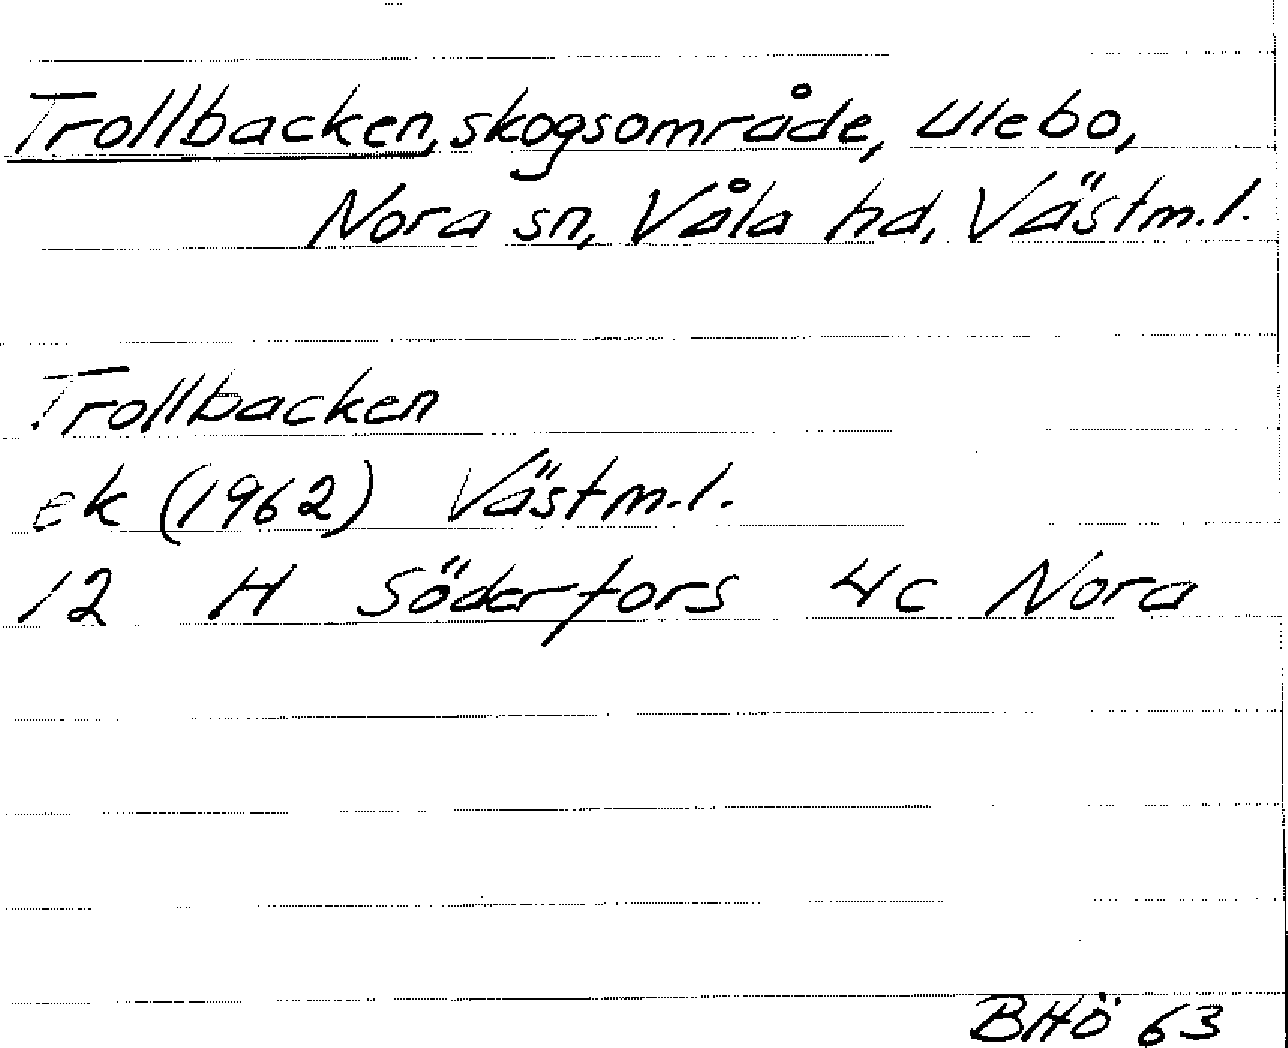 Trollbacken, skogsområde, Ulebo,
Nora sn, Våla hd, Västm.l.
Trollbacken
ek (1962) Västm.l.
12 H Söderfors 4c Nora
BHÖ 63